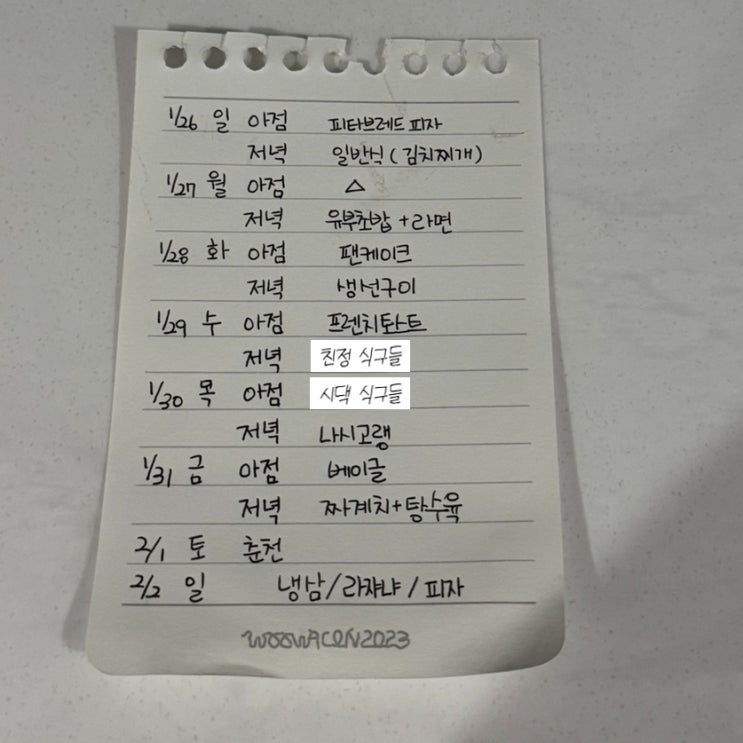 1/26 일 아점 피타브레드 피자
저녁 일반식 (김치찌개)
1/27 월 아점 △
저녁 유부초밥 + 라면
1/28 화 아점 팬케이크
저녁 생선구이
1/29 수 아점 프렌치토스트
저녁 친정 식구들
1/30 목 아점 시댁 식구들
저녁 나시고랭
1/31 금 아점 베이글
저녁 짜계치+탕수육
2/1 토 춘천
2/2 일 냉삼/라쟈냐/피자
WOOWACON2023